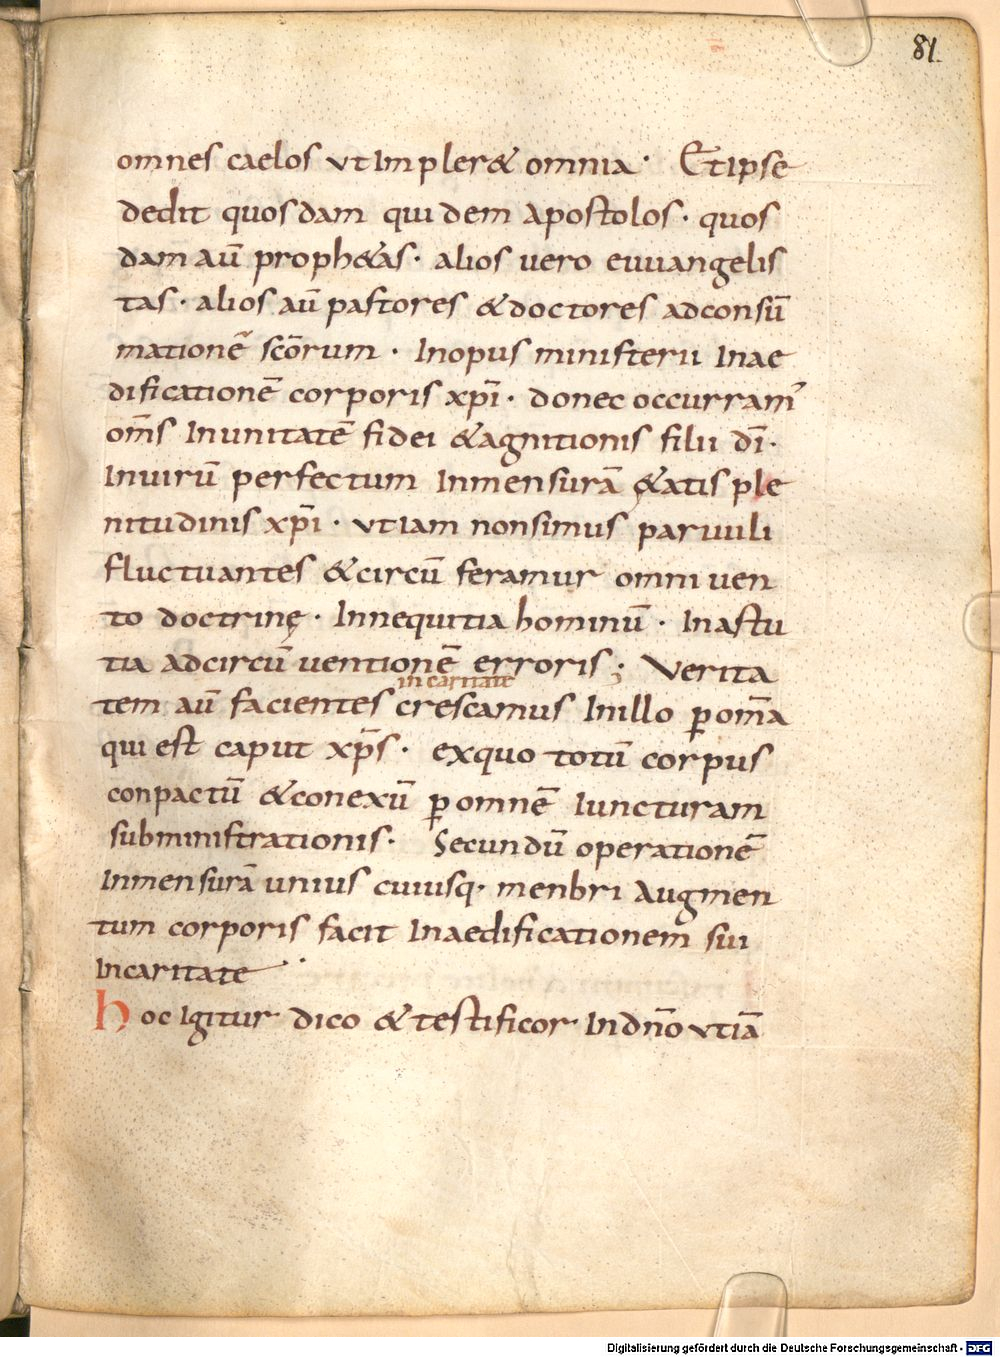 81.
omnes caelos ut Impler& omnia · Et ipse
dedit quosdam quidem apostolos · quos
dam aū proph&as · alios uero euuangelis
tas · alios aū pastores & doctores adconsū
mationē scōrum · Inopus ministerii Inae
dificationē corporis xp̄i · donec occurram᾽
om̄s Inunitatē fidei & agnitionis filii dī ·
Inuirū perfectum Inmensurā &atis ple
nitudinis xp̄i · ut iam nonsimus paruuli
fluctuantes & circū feramur omni uen
to doctrinę · Innequitia hominū · Inastu
tia adcircū uentionē erroris ; Verita
in caritate
tem aū facientes crescamus Inillo ꝑ om̄a
qui est caput xp̄s · exquo totū corpus
conpactū & conexū ꝑ omnē Iuncturam
subministrationis · Secundū operationē
Inmensurā unius cuiusq· menbri augmen
tum corporis facit Inaedificationem sui
Incaritate ··
hoc Igitur dico & testificor Indn̄o ut iā
Digitalisierung gefördert durch die Deutsche Forschungsgemeinschaft - DFG